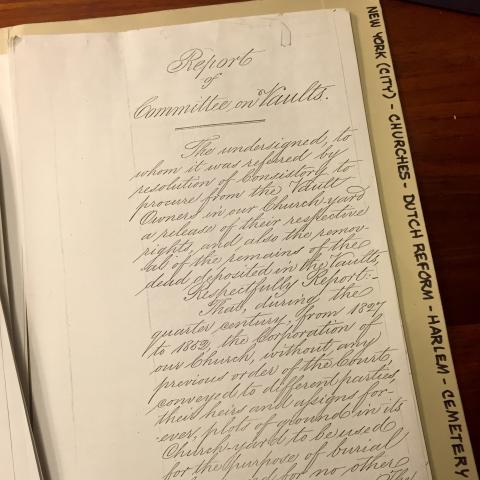 Report
of
Committee on Vaults.
The undersigned, to
whom it was referred by
resolution of Consistory to
procure from the Vault
Owners in our Church-yard
a release of their respective
rights, and also the remov-
al of the remains of the
dead deposited in the Vaults,
Respectfully Report:-
That, during the
quarter century, from 1827
to 1852, the Corporation of
our Church, without any
previous order of the Court,
conveyed to different parties,
their heirs and assigns for-
ever, plots of ground in its
Church-yard to be used
for the purpose of burial
for no other
NEW YORK (CITY) - CHURCHES - DUTCH REFORM - HARLEM - CEMETERY